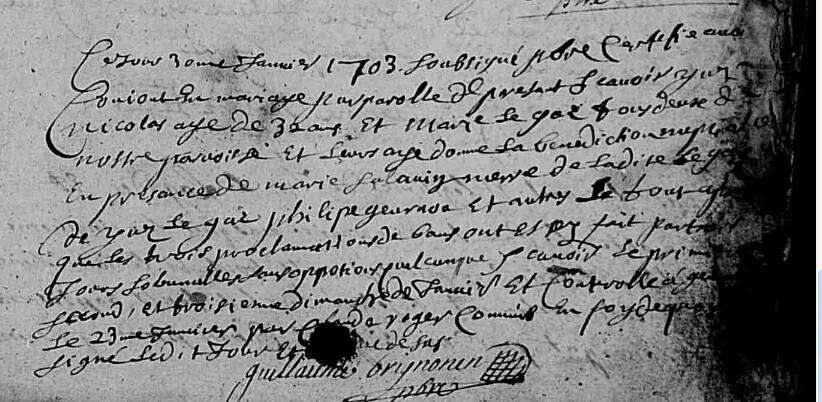 pbre
Ce Jour 30me Janvier 1703. Soubsigné pbre Certifie avoir
Conioint En mariage par parolle de present Scavoir yun
nicolas agé de 32 ans Et Marie le gac tous deux de
nostre paroisse Et leurs ayé donné la benediction nuptialle
En presance de marie Salauin merre de ladite le gac
de yun le gac philipe geurnou Et autres le tout
que les trois proclamations de bans ont esté fait par trois
Jours solomnelles sans oppotions quelconque Scavoir le premier
second, et troisieme dimanche de Janvier Et Controllé
le 23me Janvier par roger Commis En foy de quoy
signé ledit Jour Et de sus
guillaume brignonen
pbre